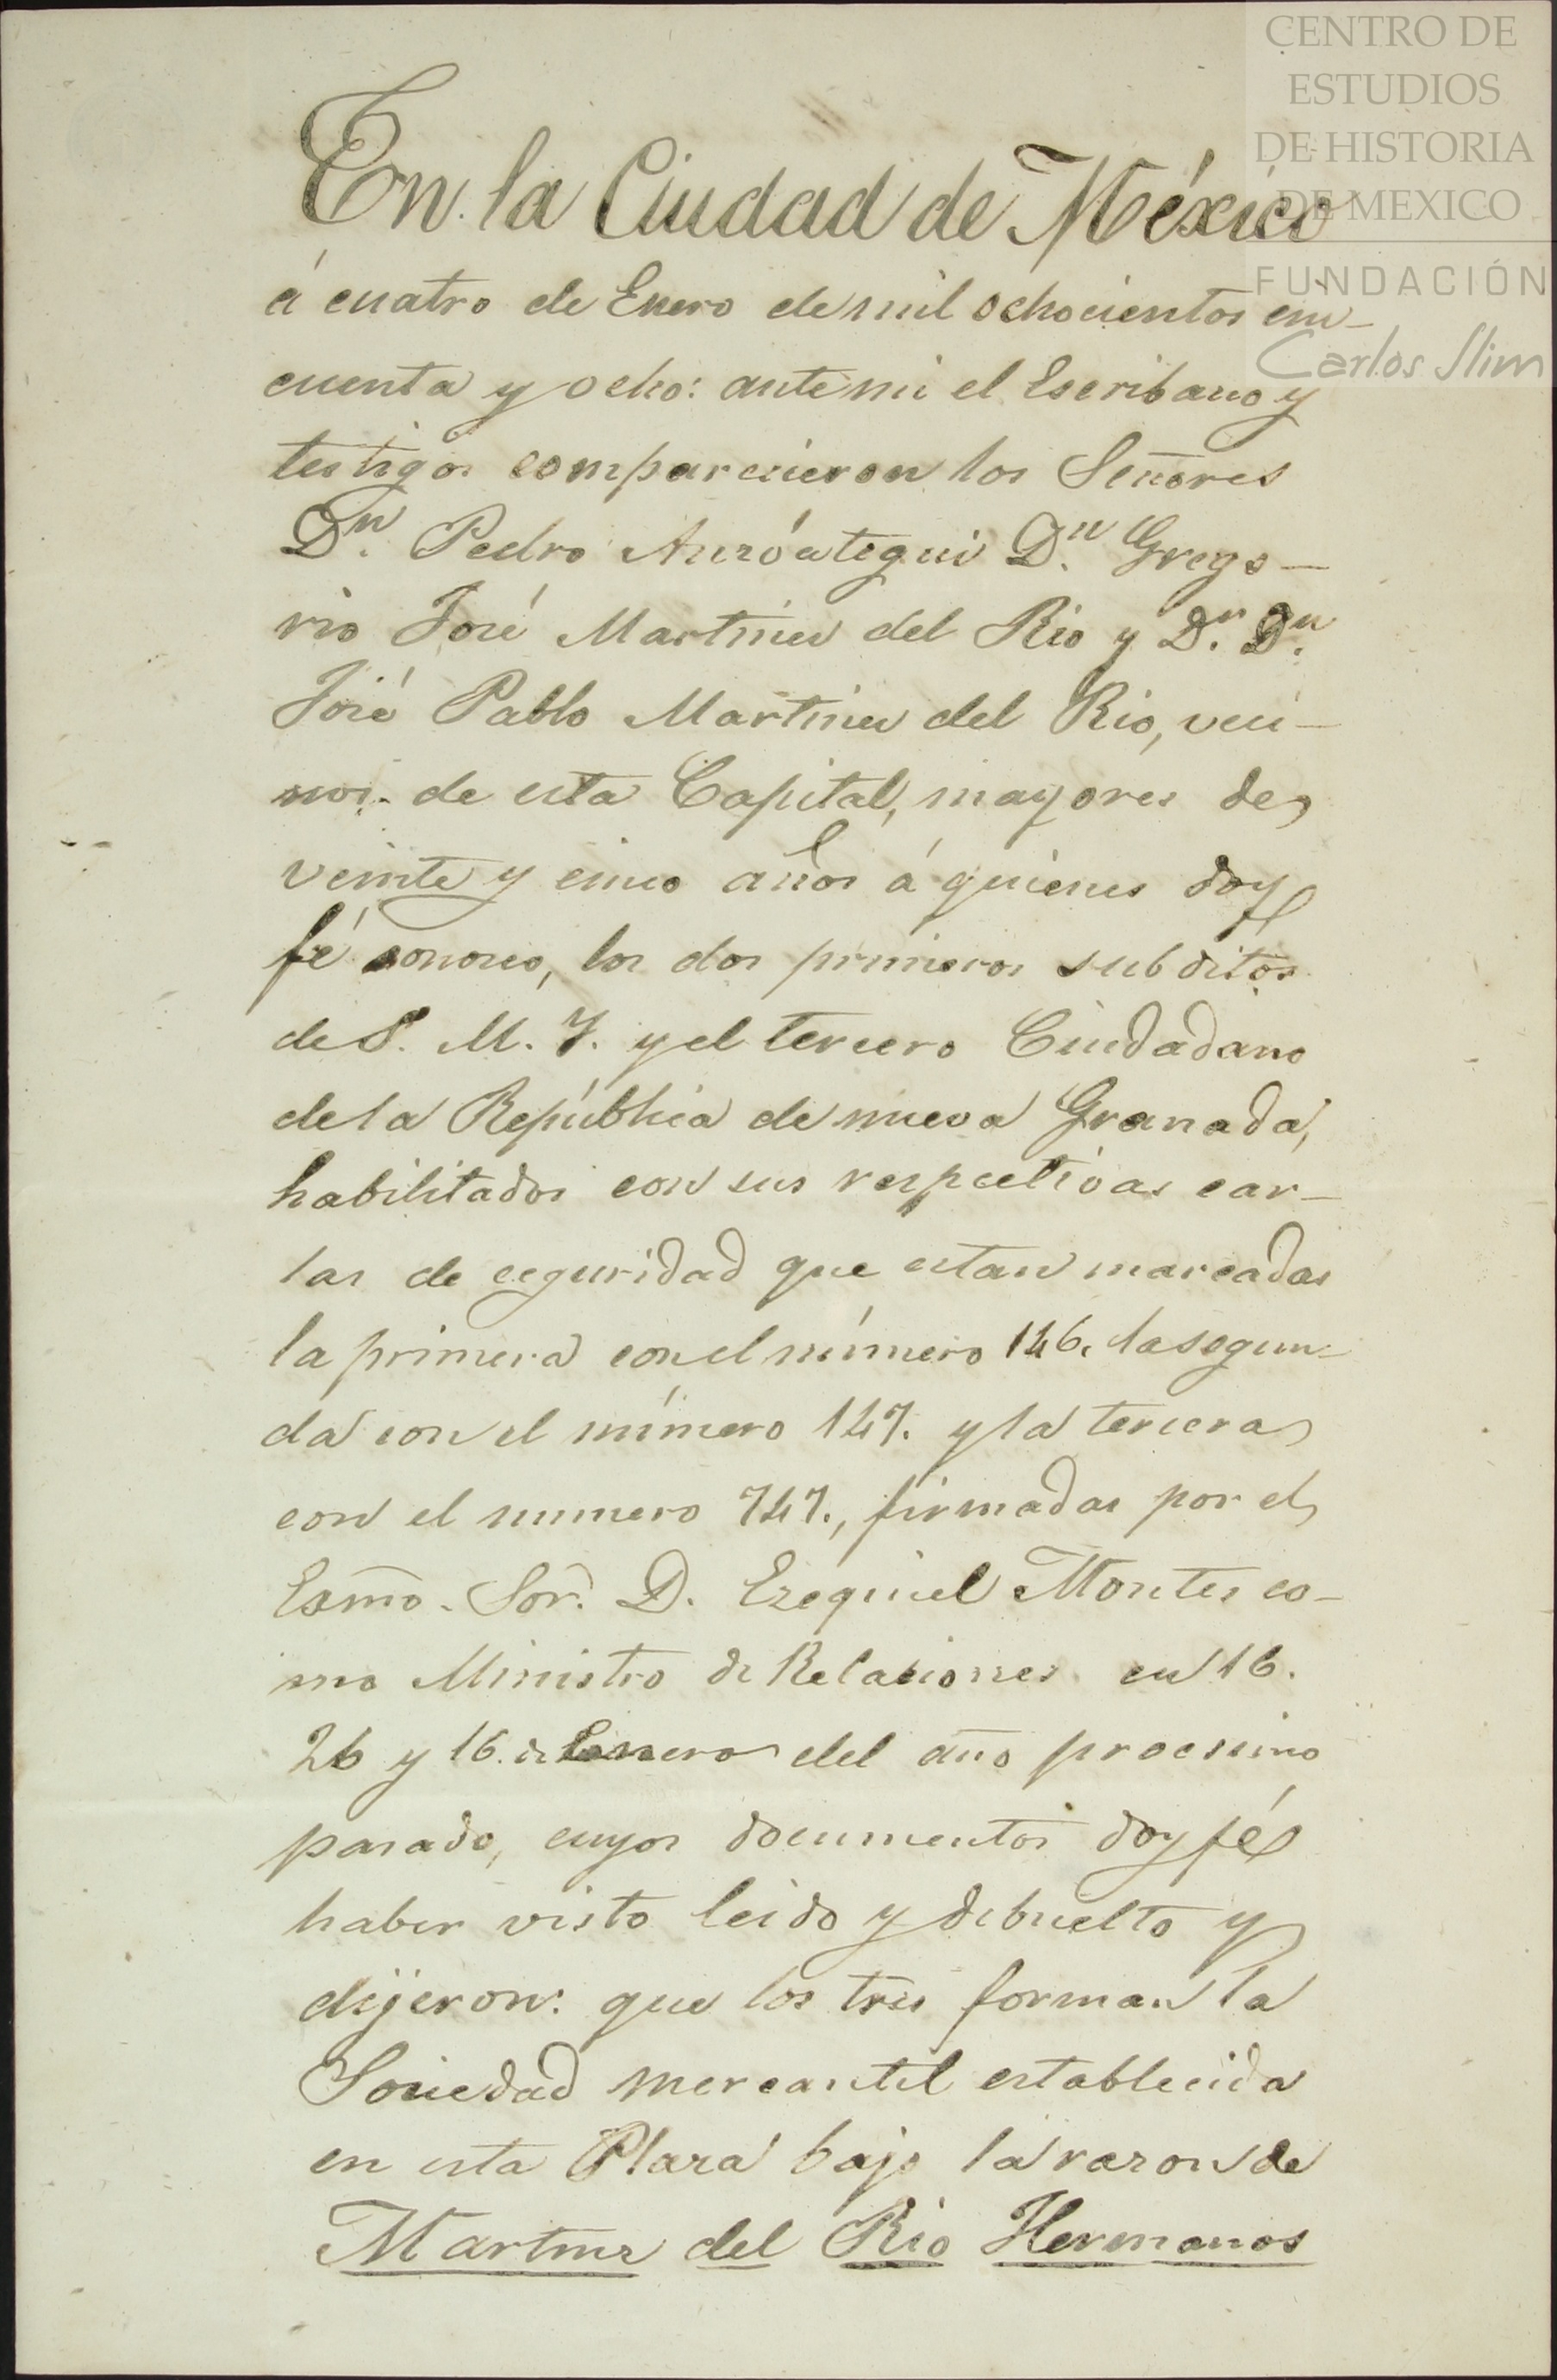 CENTRO DE
ESTUDIOS
DE HISTORIA
DE MEXICO
FUNDACIÓN
Carlos Slim
En la Ciudad de México
á cuatro de Enero de mil ochocientos cin-
cuenta y ocho: ante mi el Escribano y
testigos comparecieron los Señores
Dn. Pedro Anzóategui Dn. Grego-
rio José Martinez del Rio y Dr. Dn.
José Pablo Martinez del Rio, veci-
nos de esta Capital, mayores de
veinte y cinco años á quienes doy
fé conosco, los dos primeros subditos
de S. M. I. y el tercero Ciudadano
de la República de nueva Granada,
habilitados con sus respectivas car-
tas de seguridad que estan marcadas
la primera con el número 146. la segun-
da con el número 147. y la tercera
con el numero 747., firmadas por el
Esmo. Sor. D. Ezequiel Montes co-
mo Ministro de Relaciones en 16.
26 y 16. de Enero del año procsimo
pasado, cuyos documentos doy fé
haber visto leido y debuelto y
dijeron: que los tres forman la
Sociedad mercantil establecida
en esta Plaza bajo la razon de
Martinez del Rio Hermanos